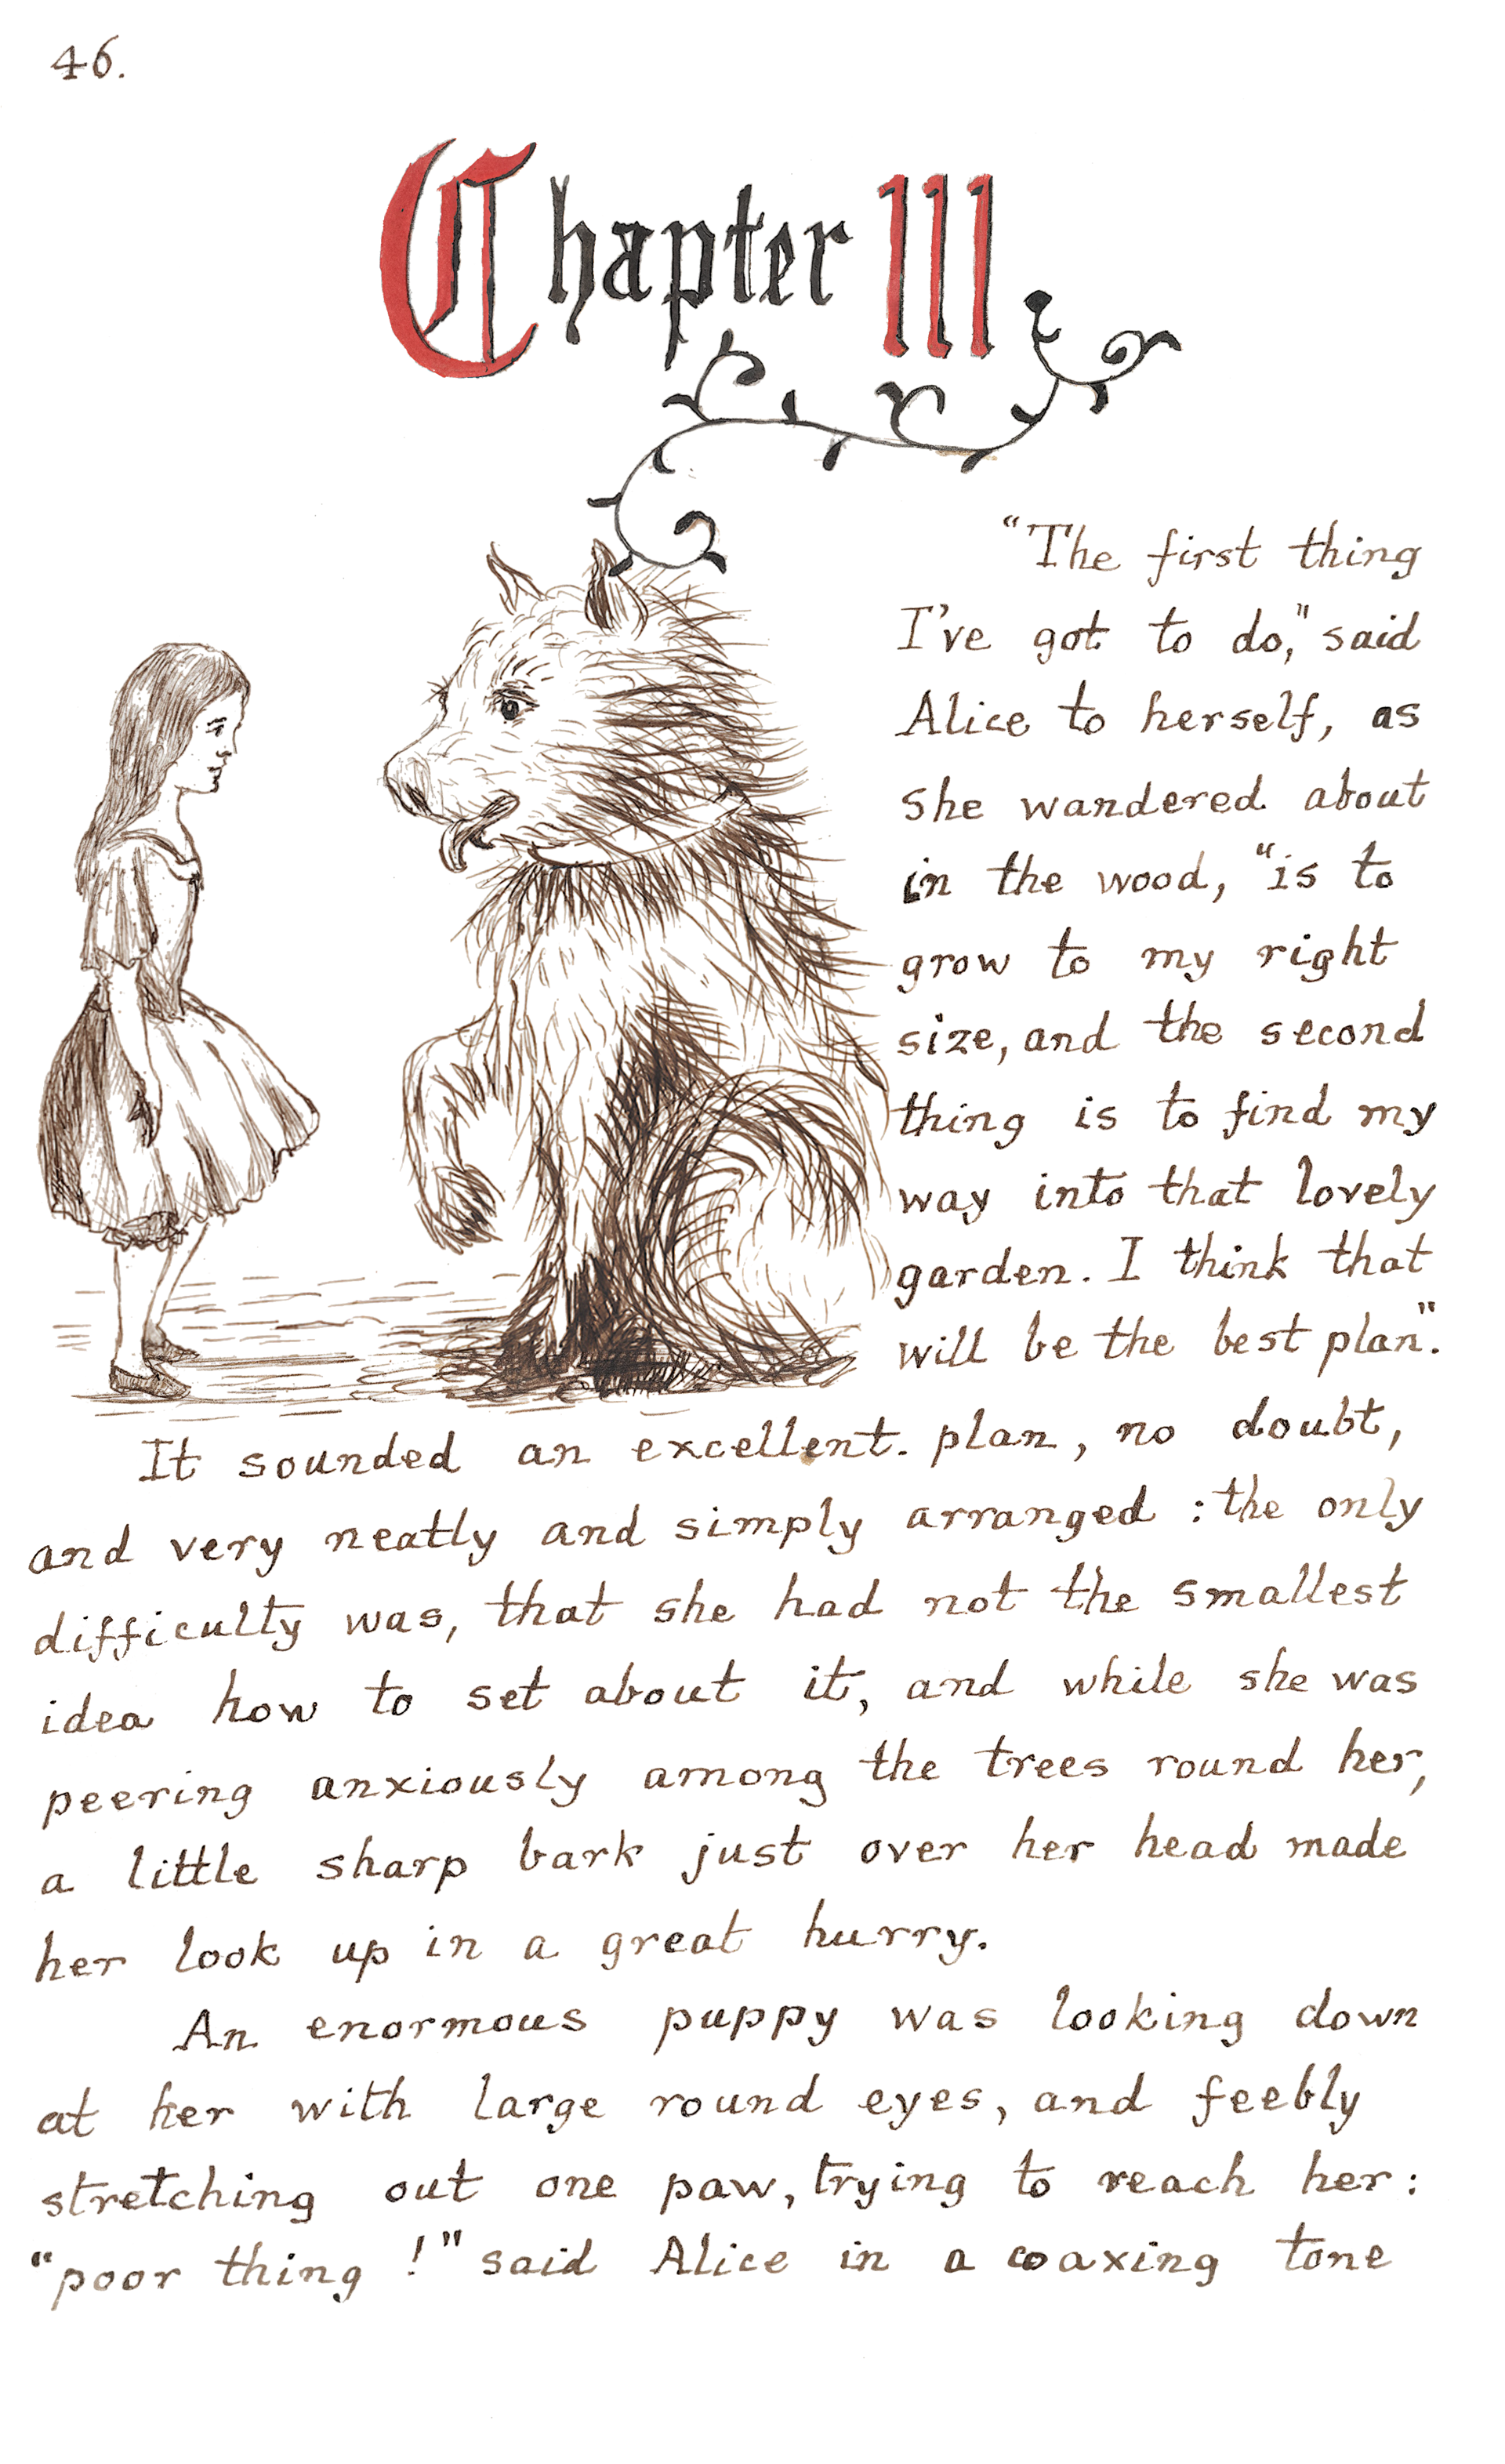 46.
Chapter III
"The first thing
I've got to do," said
Alice to herself, as
she wandered about
in the wood, "is to
grow to my right
size, and the second
thing is to find my
way into that lovely
garden. I think that
will be the best plan".
It sounded an excellent plan, no doubt,
and very neatly and simply arranged : the only
difficulty was, that she had not the smallest
idea how to set about it, and while she was
peering anxiously among the trees round her,
a little sharp bark just over her head made
her look up in a great hurry.
An enormous puppy was looking down
at her with large round eyes, and feebly
stretching out one paw, trying to reach her :
"poor thing !" said Alice in a coaxing tone